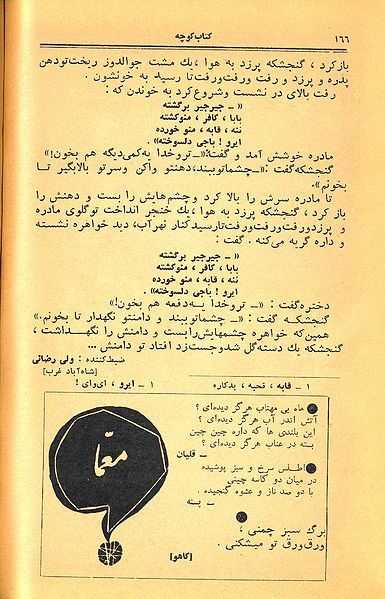 ۱۶۶
کتاب کوچه
باز کرد ، گنجشکه پرزد به هوا ، یك مشت جوالدوز ریخت تو دهن
پدره و پرزد و رفت ورفت ورفت تا رسید به خونشون .
رفت بالای در نشست وشروع کرد به خوندن که :
«ــ جیرجیر برگشته
بابا ، کافر ، منو کشته
ننه ، قابه ، منو خورده
ایرو ! باجی دلسوخته» .
مادره خوشش آمد و گفت: «ــ ترو خدا یه کمی دیگه هم بخون!»
گنجشکه گفت: «ــ چشما تو ببند، دهنتو واکن وسرتو بالابگیر تا
بخونم».
تا مادره سرش را بالا کرد وچشم‌هایش را بست و دهنش را
باز کرد ، گنجشکه پرزد به هوا ، یك خنجر انداخت تو گلوی مادره
و پرزد ورفت ورفت ورفت تا رسید کنار نهر آب، دید خواهره نشسته
و داره گریه می‌کنه . گفت :
«ــ جیرجیر برگشته
بابا ، کافر ، منو کشته
ننه ، قابه ، منو خورده
ایرو ! باجی دلسوخته» .
دختره گفت : «ــ ترو خدا یه دفعه هم بخون!»
گنجشکه گفت : «ــ چشما تو ببند و دامنتو نگهدار تا بخونم.»
همین که خواهره چشمهایش را بست و دامنش را نگهــداشت ،
گنجشکه یك دسته گل شد و جست زد افتاد تو دامنش ...
ضبط کننده : ولی رضائی
[شاه‌آباد غرب]
۱ ــ قابه ، قحبه ، بدکاره
۱ ــ ایرو ، ای وای !
معما
ماه بی مهتاب هرگز دیده‌ای ؟
آتش اندر آب هرگز دیده‌ای ؟
این بلندی ها که داره چین چین
بسته در عناب هرگز دیده‌ای ؟
ــ قلیان
اطلس سرخ و سبز پوشیده
در میان دو کاسه چینی
با دو صد ناز و عشوه گنجیده .
ــ پسته
برگ سبز چمنی ،
ورق ورق تو میشکنی .
[کاهو]